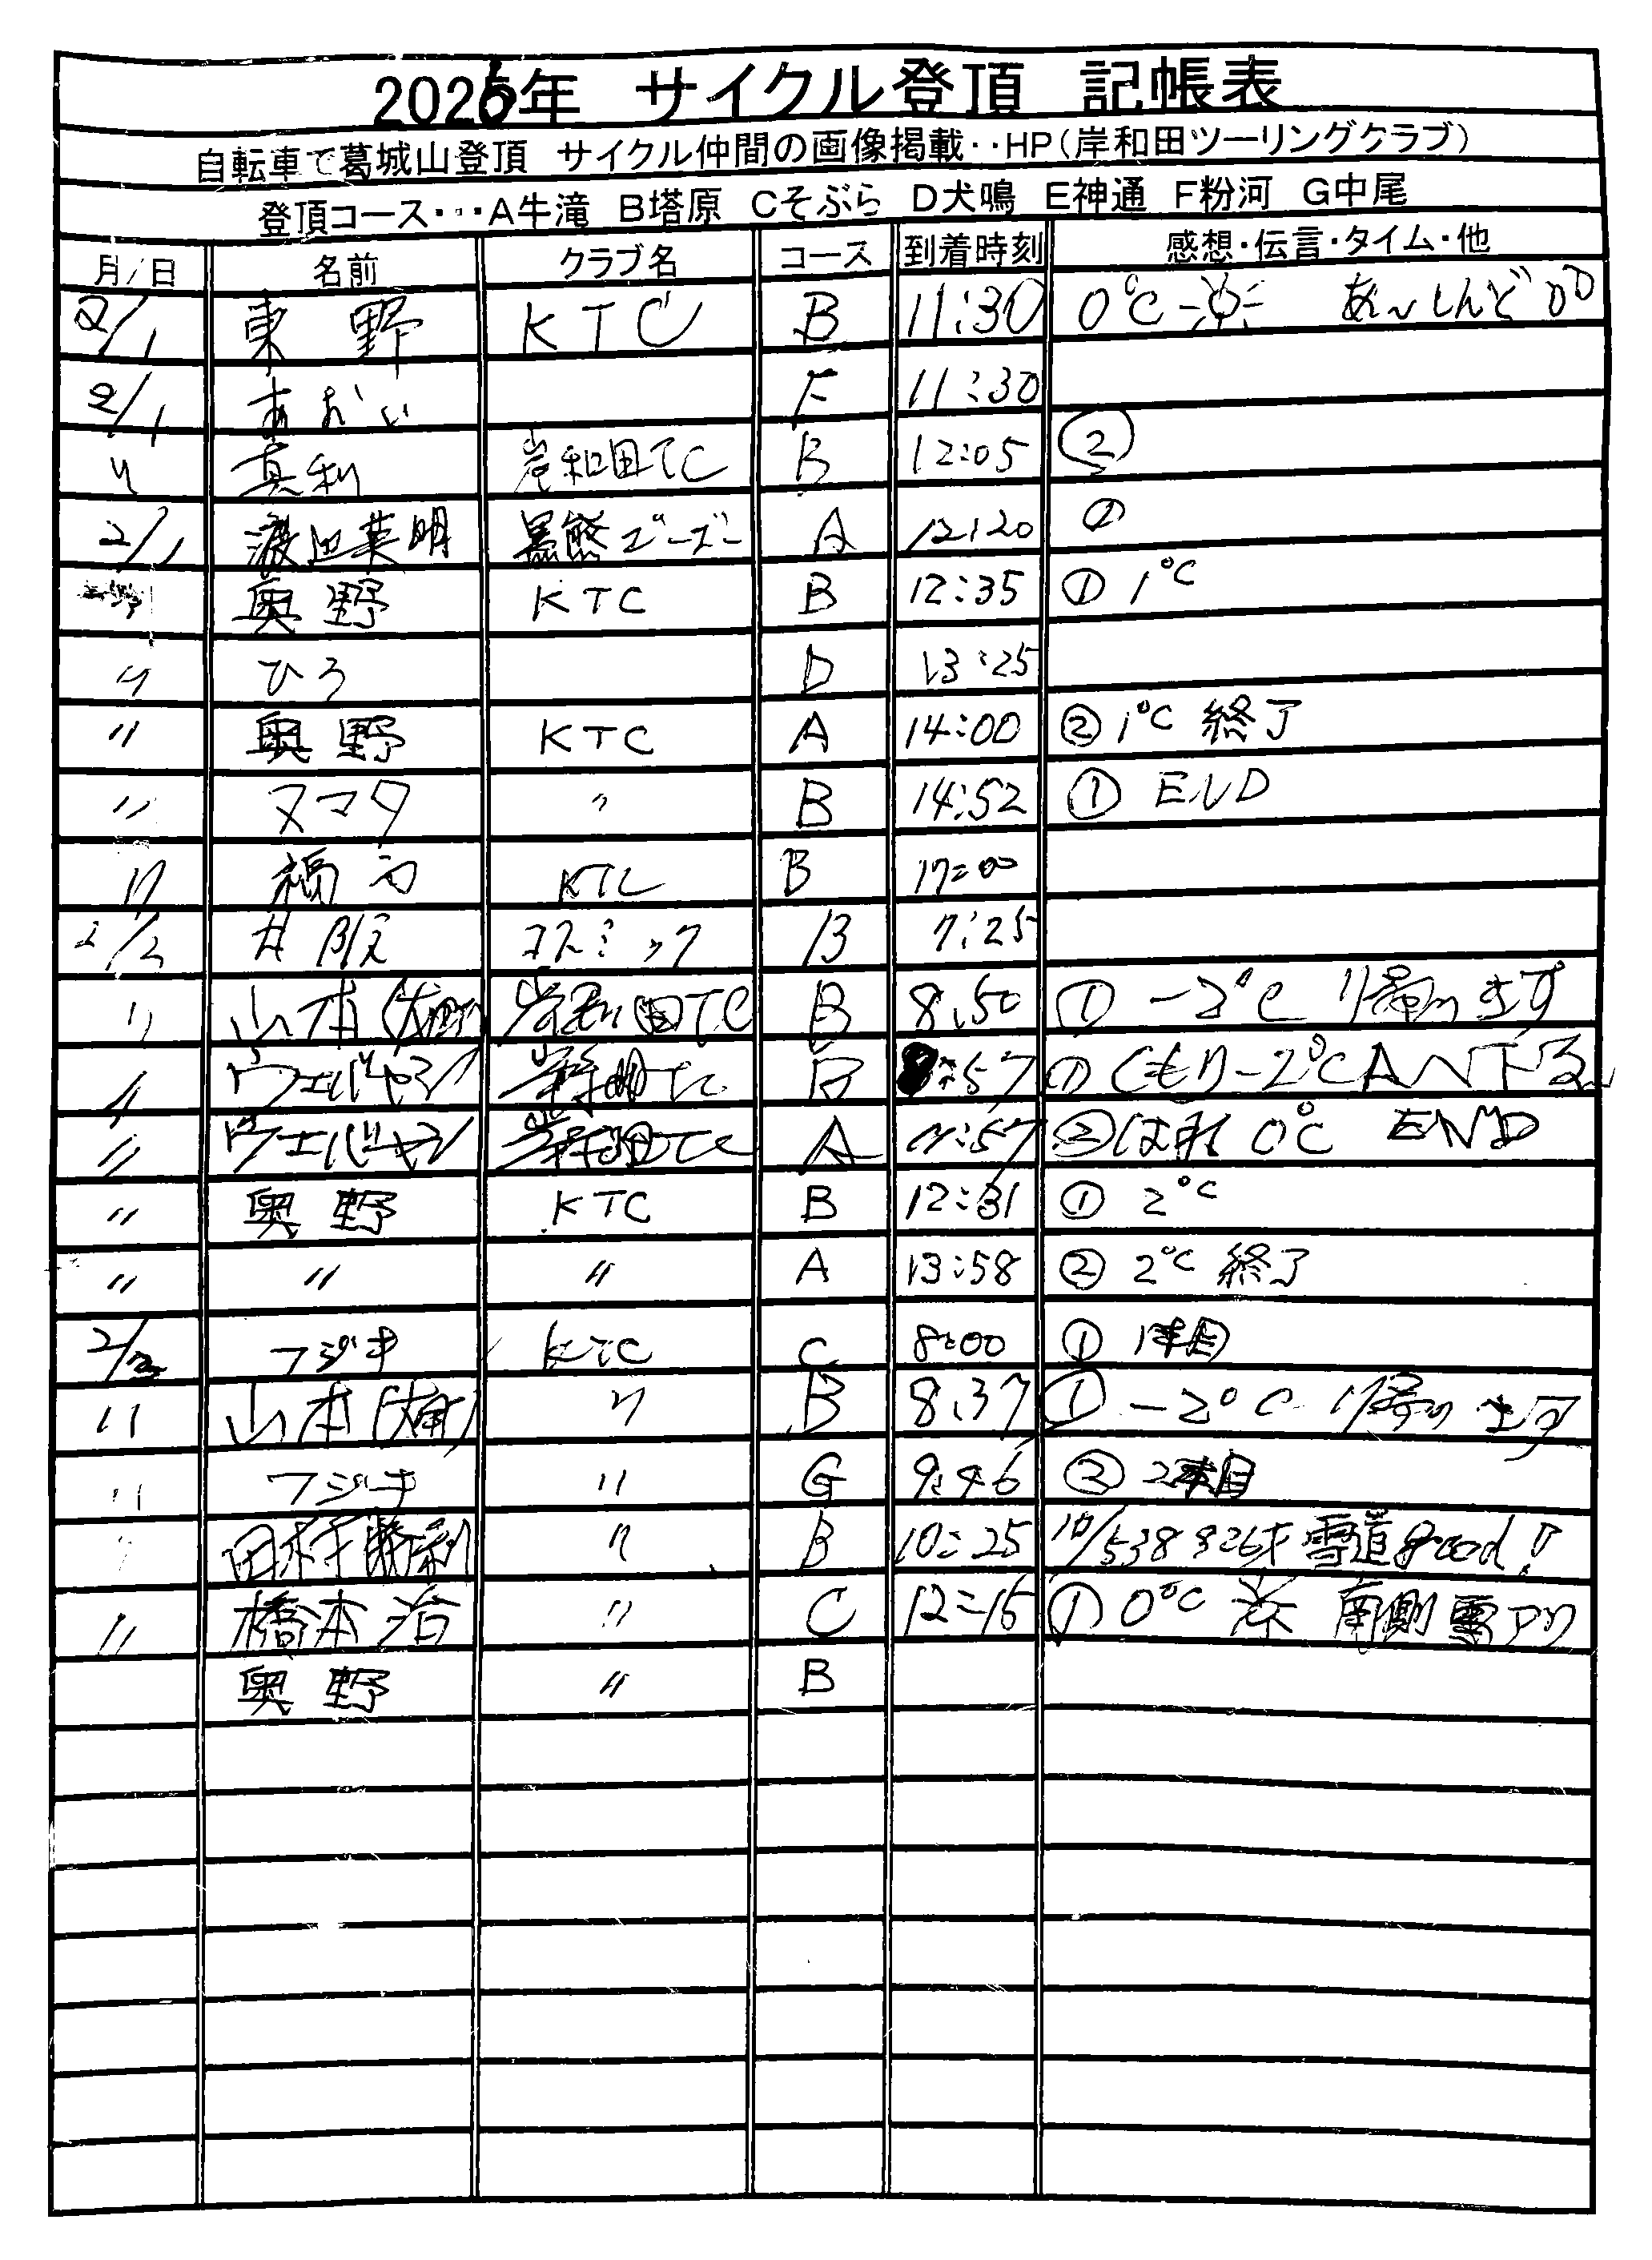 2026年 サイクル登頂 記帳表
自転車で葛城山登頂 サイクル仲間の画像掲載‥HP(岸和田ツーリングクラブ)
登頂コース‥・A牛滝 B塔原 Cそぶら D犬鳴 E神通 F粉河 G中尾
月/日 名前 クラブ名 コース 到着時刻 感想・伝言・タイム・他
2/1 東野 KTC B 11:30 0℃ あ〜しんど
2/1 あおい F 11:30
〃 真利 岸和田TC B 12:05 ②
2/1 渡辺英明 黒熊 A 12:20 ①
〃 奥野 KTC B 12:35 ① 1℃
〃 ひろ D 13:25
〃 奥野 KTC A 14:00 ② 1℃ 終了
〃 ヌマタ 〃 B 14:52 ① END
〃 KTC B 17:00
2/2 井阪 コスミック B 7:25
〃 山本 岸和田TC B 8:50 ① -2℃ 帰ります
〃 ヴェバヤン 岸和田TC B :57 ① くもり -2℃ Aへ下る
〃 ヴェバヤン 岸和田TC A 11:57 ② はれ 0℃ END
〃 奥野 KTC B 12:31 ① 2℃
〃 〃 〃 A 13:58 ② 2℃ 終了
2/3 フジキ KTC C 8:00 ① 1本目
〃 山本 〃 B 8:37 ① -2℃ 帰ります
〃 フジキ 〃 G 9:46 ② 2本目
〃 田村勝利 〃 B 10:25 雪道good!
〃 橋本治 〃 C 12:15 ① 0℃ 南側雪アリ
奥野 〃 B